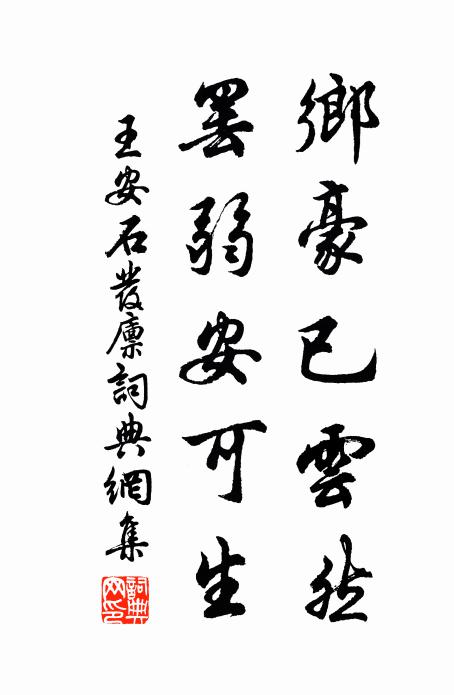 鄉豪已雲然
罢弱安可生
王安石發廩詞典網集
詞典网印